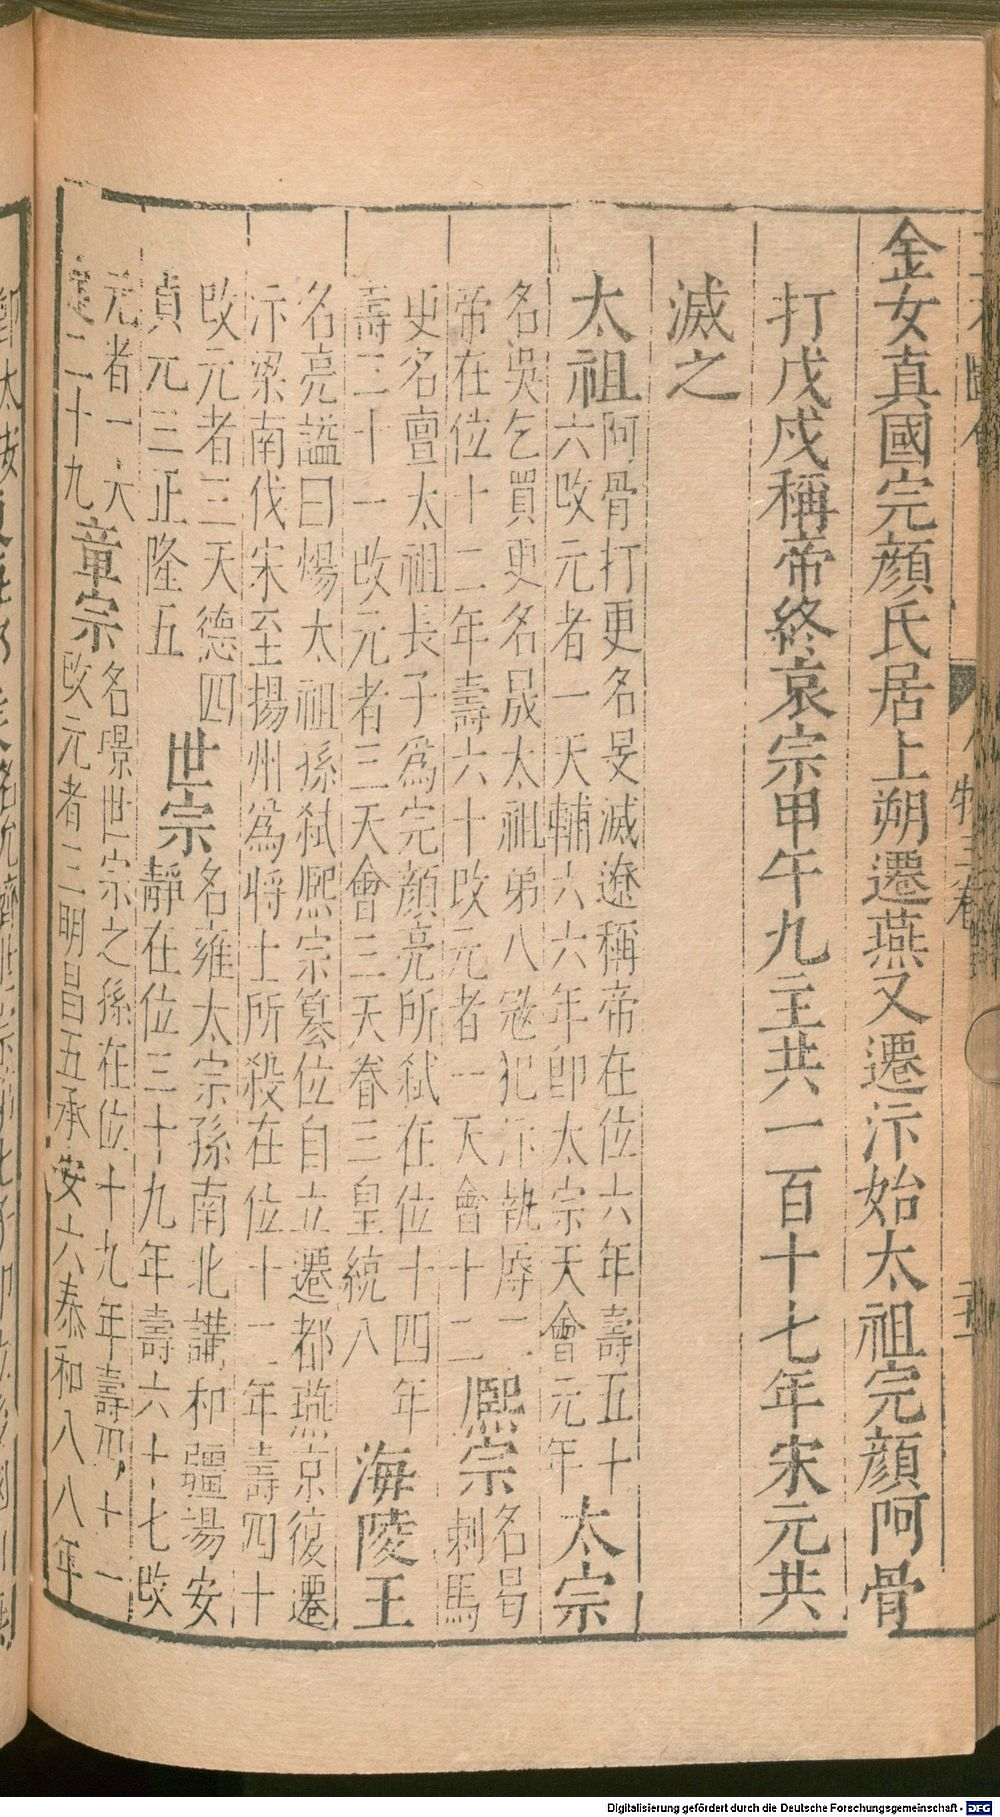 金女真國完顏氏居上朔遷燕又遷汴始太祖完顏阿骨
打戊戌稱帝終哀宗甲午九主共一百十七年宋元共
滅之
太祖
阿骨打更名旻滅遼稱帝在位六年壽五十
六改元者一天輔六六年卽太宗天會元年
太宗
名吳乞買更名晟太祖弟八冦犯汴執辱二
帝在位十二年壽六十改元者一天會十二
熙宗
名曷剌馬
更名亶太祖長子為完顏亮所弒在位十四年
壽三十一改元者三天會三天眷三皇統八
海陵王
名亮謚曰煬太祖孫弒熙宗簒位自立遷都燕京復遷
汴梁南伐宋至揚州為將士所殺在位十二年壽四十
改元者三天德四
貞元三正隆五
世宗
名雍太宗孫南北講和疆場安
靜在位三十九年壽六十七改
元者一大
定二十九
章宗
名璟世宗之孫在位十九年壽四十一
改元者三明昌五承安六泰和八八年
人物三卷
Digitalisierung gefördert durch die Deutsche Forschungsgemeinschaft - DFG